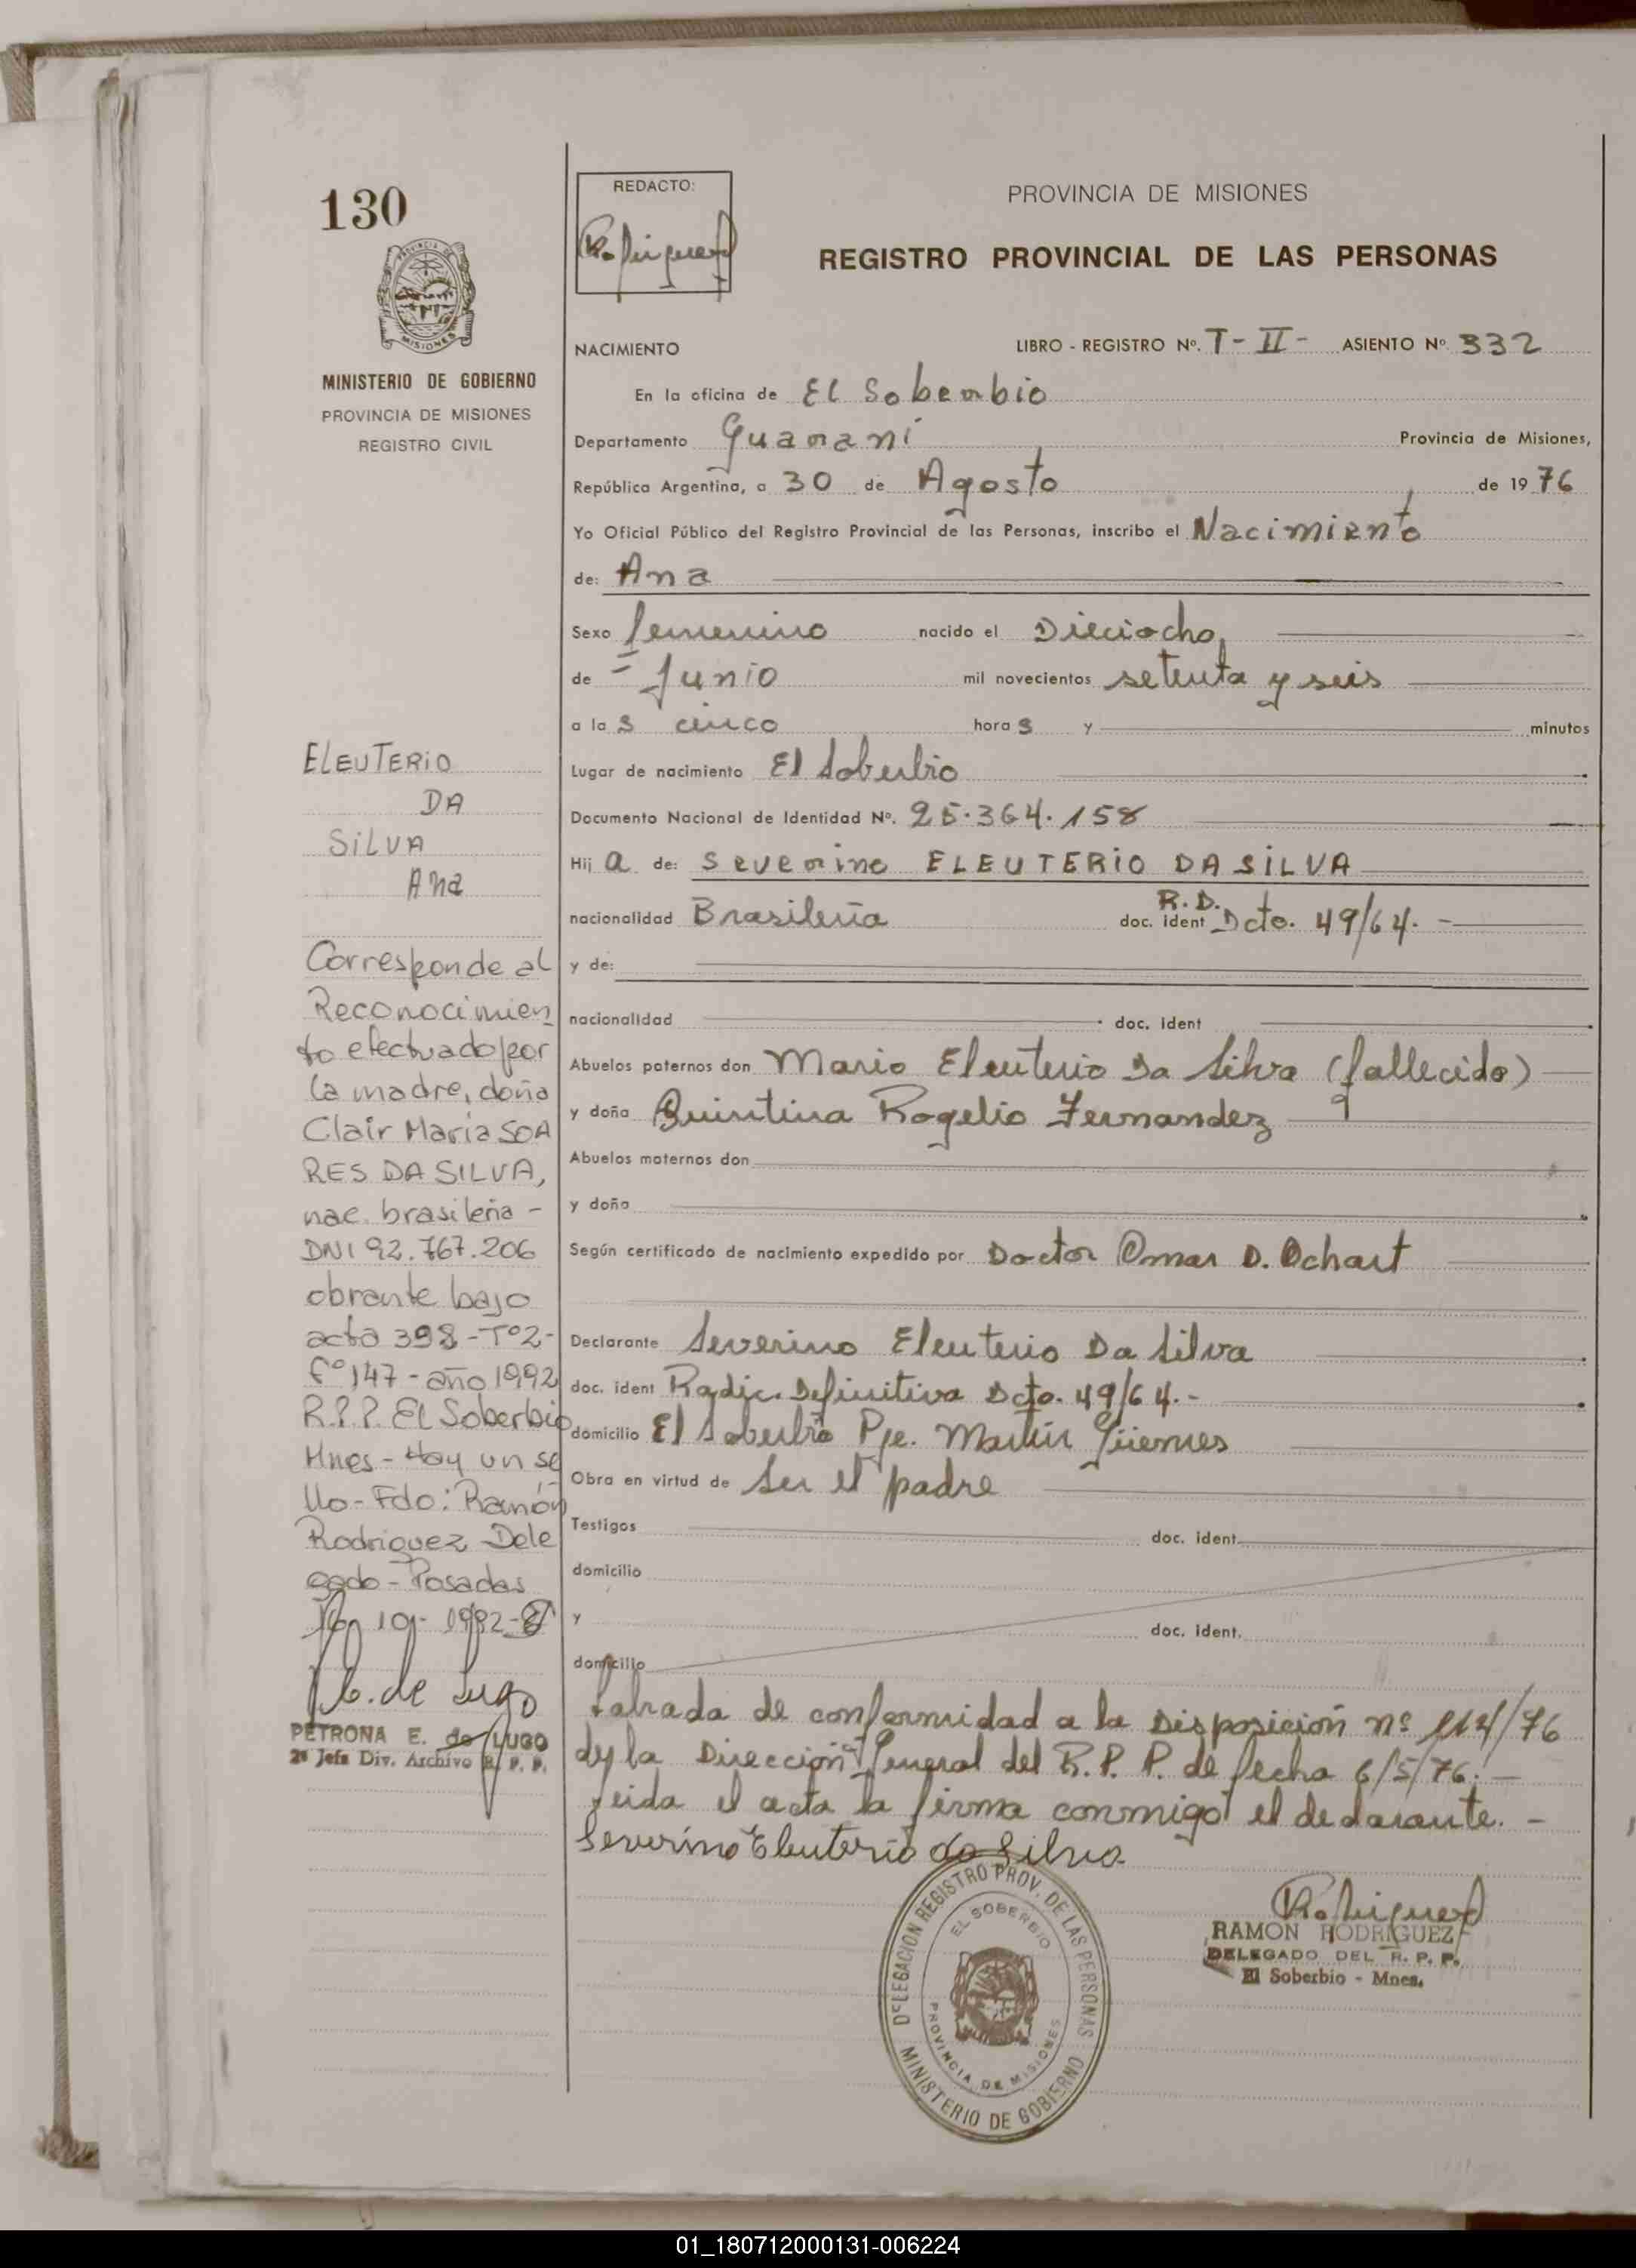 130
REDACTO:
Rodriguez
PROVINCIA DE MISIONES
REGISTRO PROVINCIAL DE LAS PERSONAS
PROVINCIA DE
MISIONES
MINISTERIO DE GOBIERNO
PROVINCIA DE MISIONES
REGISTRO CIVIL
NACIMIENTO LIBRO - REGISTRO Nº. T - II - ASIENTO Nº. 332
En la oficina de El Soberbio
Departamento Guarani Provincia de Misiones,
República Argentina, a 30 de Agosto de 19 76
Yo Oficial Público del Registro Provincial de las Personas, inscribo el Nacimiento
de: Ana
Sexo femenino nacido el Dieciocho,
de = Junio mil novecientos setenta y seis
a la s cinco hora s y minutos
Lugar de nacimiento El Soberbio
Documento Nacional de Identidad Nº. 25.364.158
Hij a de: Severino ELEUTERIO DA SILVA
R.D.
nacionalidad Brasileña doc. ident Dcto. 49/64. -
y de:
nacionalidad doc. ident
Abuelos paternos don Mario Eleuterio Da Silva (fallecido)
y doña Quintina Rogelio Fernandez
Abuelos maternos don
y doña
Según certificado de nacimiento expedido por Doctor Omar D. Ochart
Declarante Severino Eleuterio Da Silva
doc. ident Radic. Definitiva Dcto. 49/64.-
domicilio El Soberbio Pje. Martín Güemes
Obra en virtud de Ser el padre
Testigos doc. ident.
domicilio
y doc. ident.
domicilio
Labrada de conformidad a la Disposición nº 114/76
de la Dirección General del R. P. P. de fecha 6/5/76. -
Leida el acta la firma conmigo el declarante. -
Severino Eleuterio da Silva
ELEUTERIO
DA
SILVA
Ana
Corresponde al
Reconocimien
to efectuado por
la madre, doña
Clair Maria SOA
RES DA SILVA,
nac. brasileña -
DNI 92.767.206
obrante bajo
acta 398 - Tº2-
fº 147 - año 1992
R.P.P. El Soberbio
Mnes - Hay un se
llo - Fdo: Ramón
Rodriguez Dele
gado - Posadas
10- 1992-
de Lugo
PETRONA E. de LUGO
2ª Jefa Div. Archivo R. P. P.
DELEGACION REGISTRO PROV. DE LAS PERSONAS
EL SOBERBIO
PROVINCIA DE MISIONES
MINISTERIO DE GOBIERNO
Rodriguez
RAMON RODRIGUEZ
DELEGADO DEL R. P. P.
El Soberbio - Mnes.
01_180712000131-006224